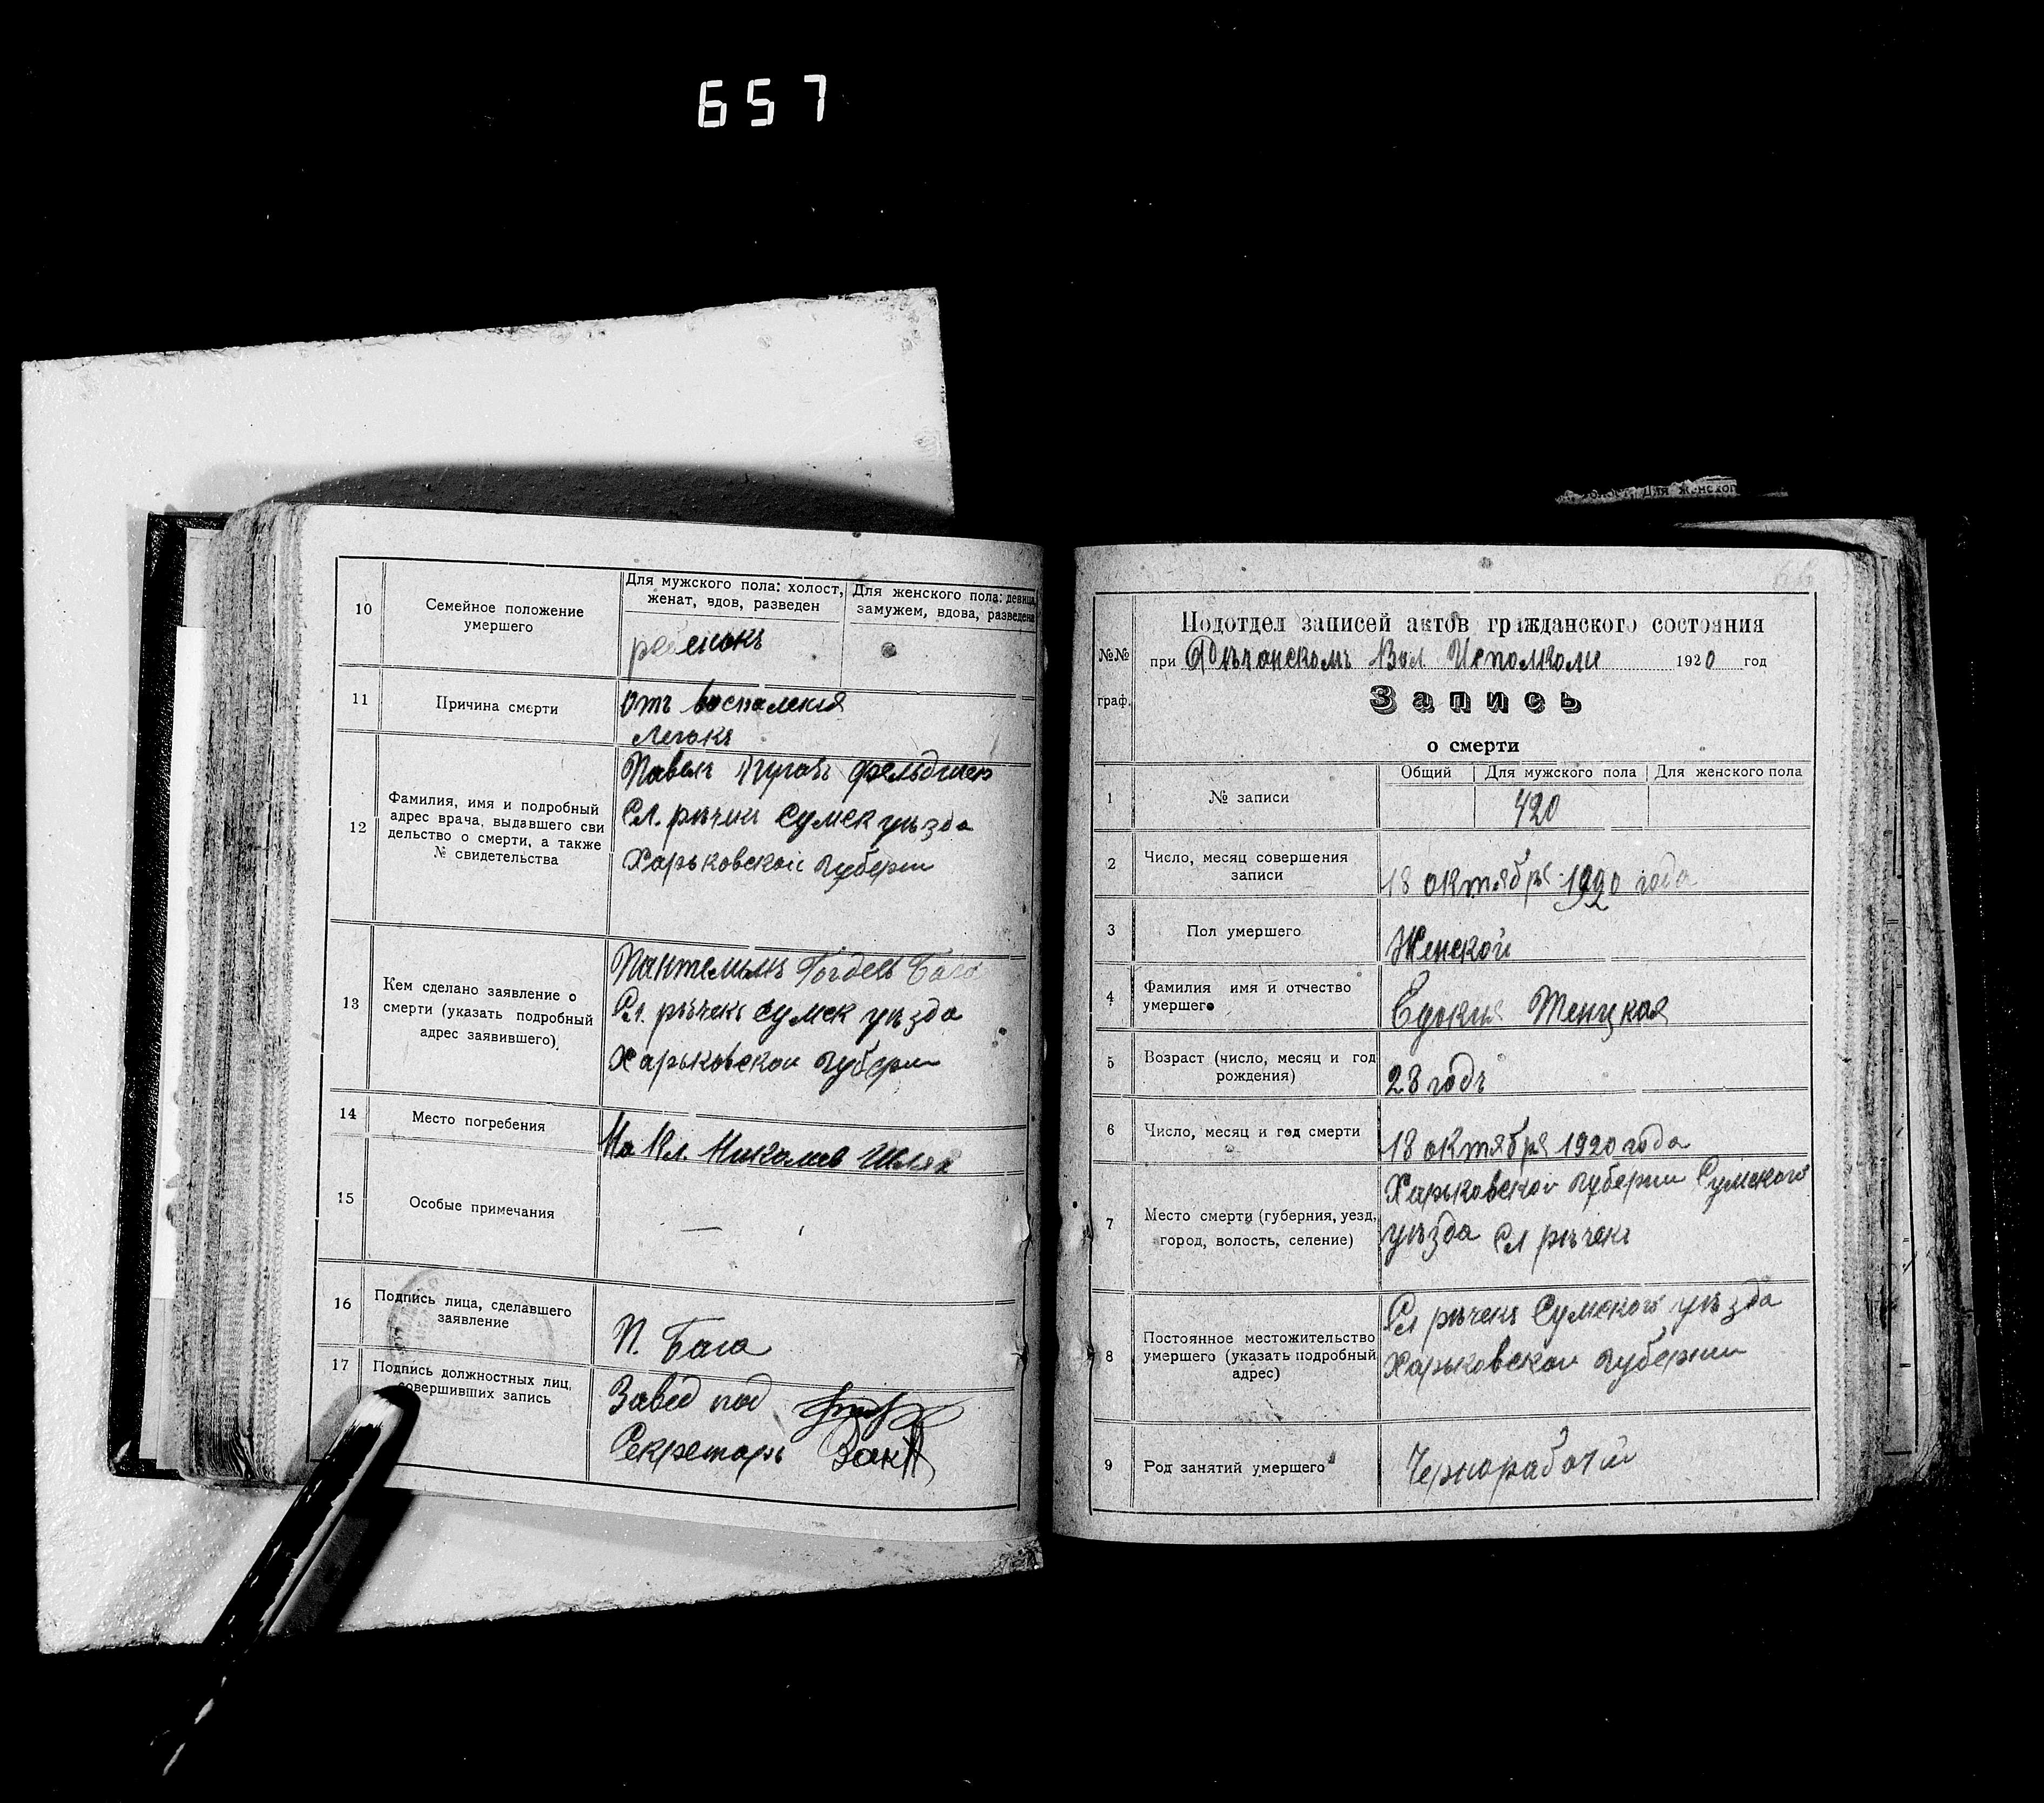 657
10
Семейное положение
умершего
Для мужского пола: холост,
женат, вдов, разведен
Для женского пола: девица,
замужем, вдова, разведена
ребенокъ
11
Причина смерти
отъ воспаления
Легокъ
12
Фамилия, имя и подробный
адрес врача, выдавшего сви
дельство о смерти, а также
№ свидетельства
Павелъ фельдшер
Сл. рѣчки Сумск уѣзда
Харьковской губерни
13
Кем сделано заявление о
смерти (указать подробный
адрес заявившего)
Бага
Сл. рѣчекъ Сумск уѣзда
Харьковской губерни
14
Место погребения
На Кл.
15
Особые примечания
—
16
Подпись лица, сделавшего
заявление
П. Бага
17
Подпись должностных лиц,
совершивших запись
Завед под
Секретарь
66
Для женского
№№
граф.
Подотдел записей актов гражданского состояния
при Вол Исполкоме 1920 год
Запись
о смерти
1
№ записи
Общий
Для мужского пола
Для женского пола
420
2
Число, месяц совершения
записи
18 октября 1920 года
3
Пол умершего
Женской
4
Фамилия имя и отчество
умершего
5
Возраст (число, месяц и год
рождения)
28 годъ
6
Число, месяц и год смерти
18 октября 1920 года
7
Место смерти (губерния, уезд,
город, волость, селение)
Харьковской губерни Сумского
уѣзда Сл рѣчекъ
8
Постоянное местожительство
умершего (указать подробный
адрес)
Сл рѣчекъ Сумского уѣзда
Харьковской губернии
9
Род занятий умершего
Чернорабочий